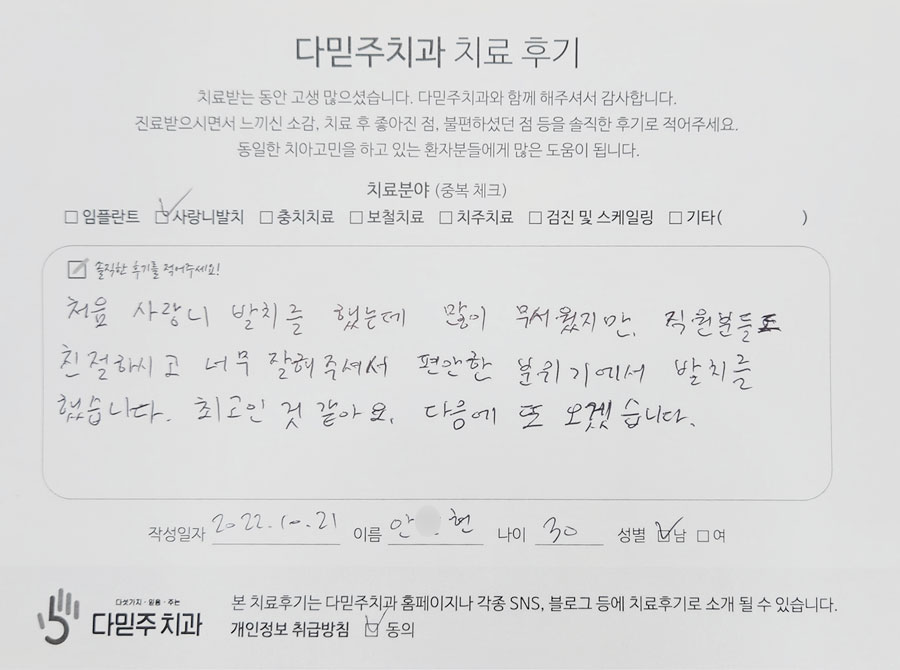 다믿주치과 치료 후기
치료받는 동안 고생 많으셨습니다. 다믿주치과와 함께 해주셔서 감사합니다.
진료받으시면서 느끼신 소감, 치료 후 좋아진 점, 불편하셨던 점 등을 솔직한 후기로 적어주세요.
동일한 치아고민을 하고 있는 환자분들에게 많은 도움이 됩니다.
치료분야 (중복 체크)
□ 임플란트 ☑ 사랑니발치 □ 충치치료 □ 보철치료 □ 치주치료 □ 검진 및 스케일링 □ 기타( )
솔직한 후기를 적어주세요!
처음 사랑니 발치를 했는데 많이 무서웠지만, 직원분들도
친절하시고 너무 잘해주셔서 편안한 분위기에서 발치를
했습니다. 최고인 것 같아요. 다음에 또 오겠습니다.
작성일자 2022.10.21 이름 안 현 나이 30 성별 ☑남 □여
다섯가지·믿음·주는
다믿주치과
본 치료후기는 다믿주치과 홈페이지나 각종 SNS, 블로그 등에 치료후기로 소개 될 수 있습니다.
개인정보 취급방침 ☑ 동의